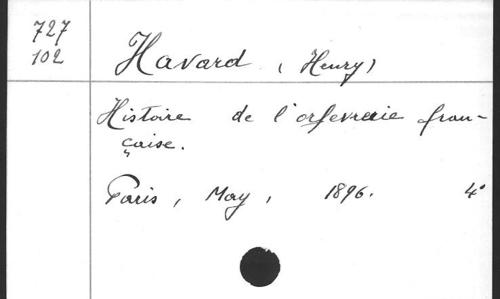 727
102
Havard (Henry)
Histoire de l'orfevrerie fran-
çaise.
Paris, May, 1896. 4°